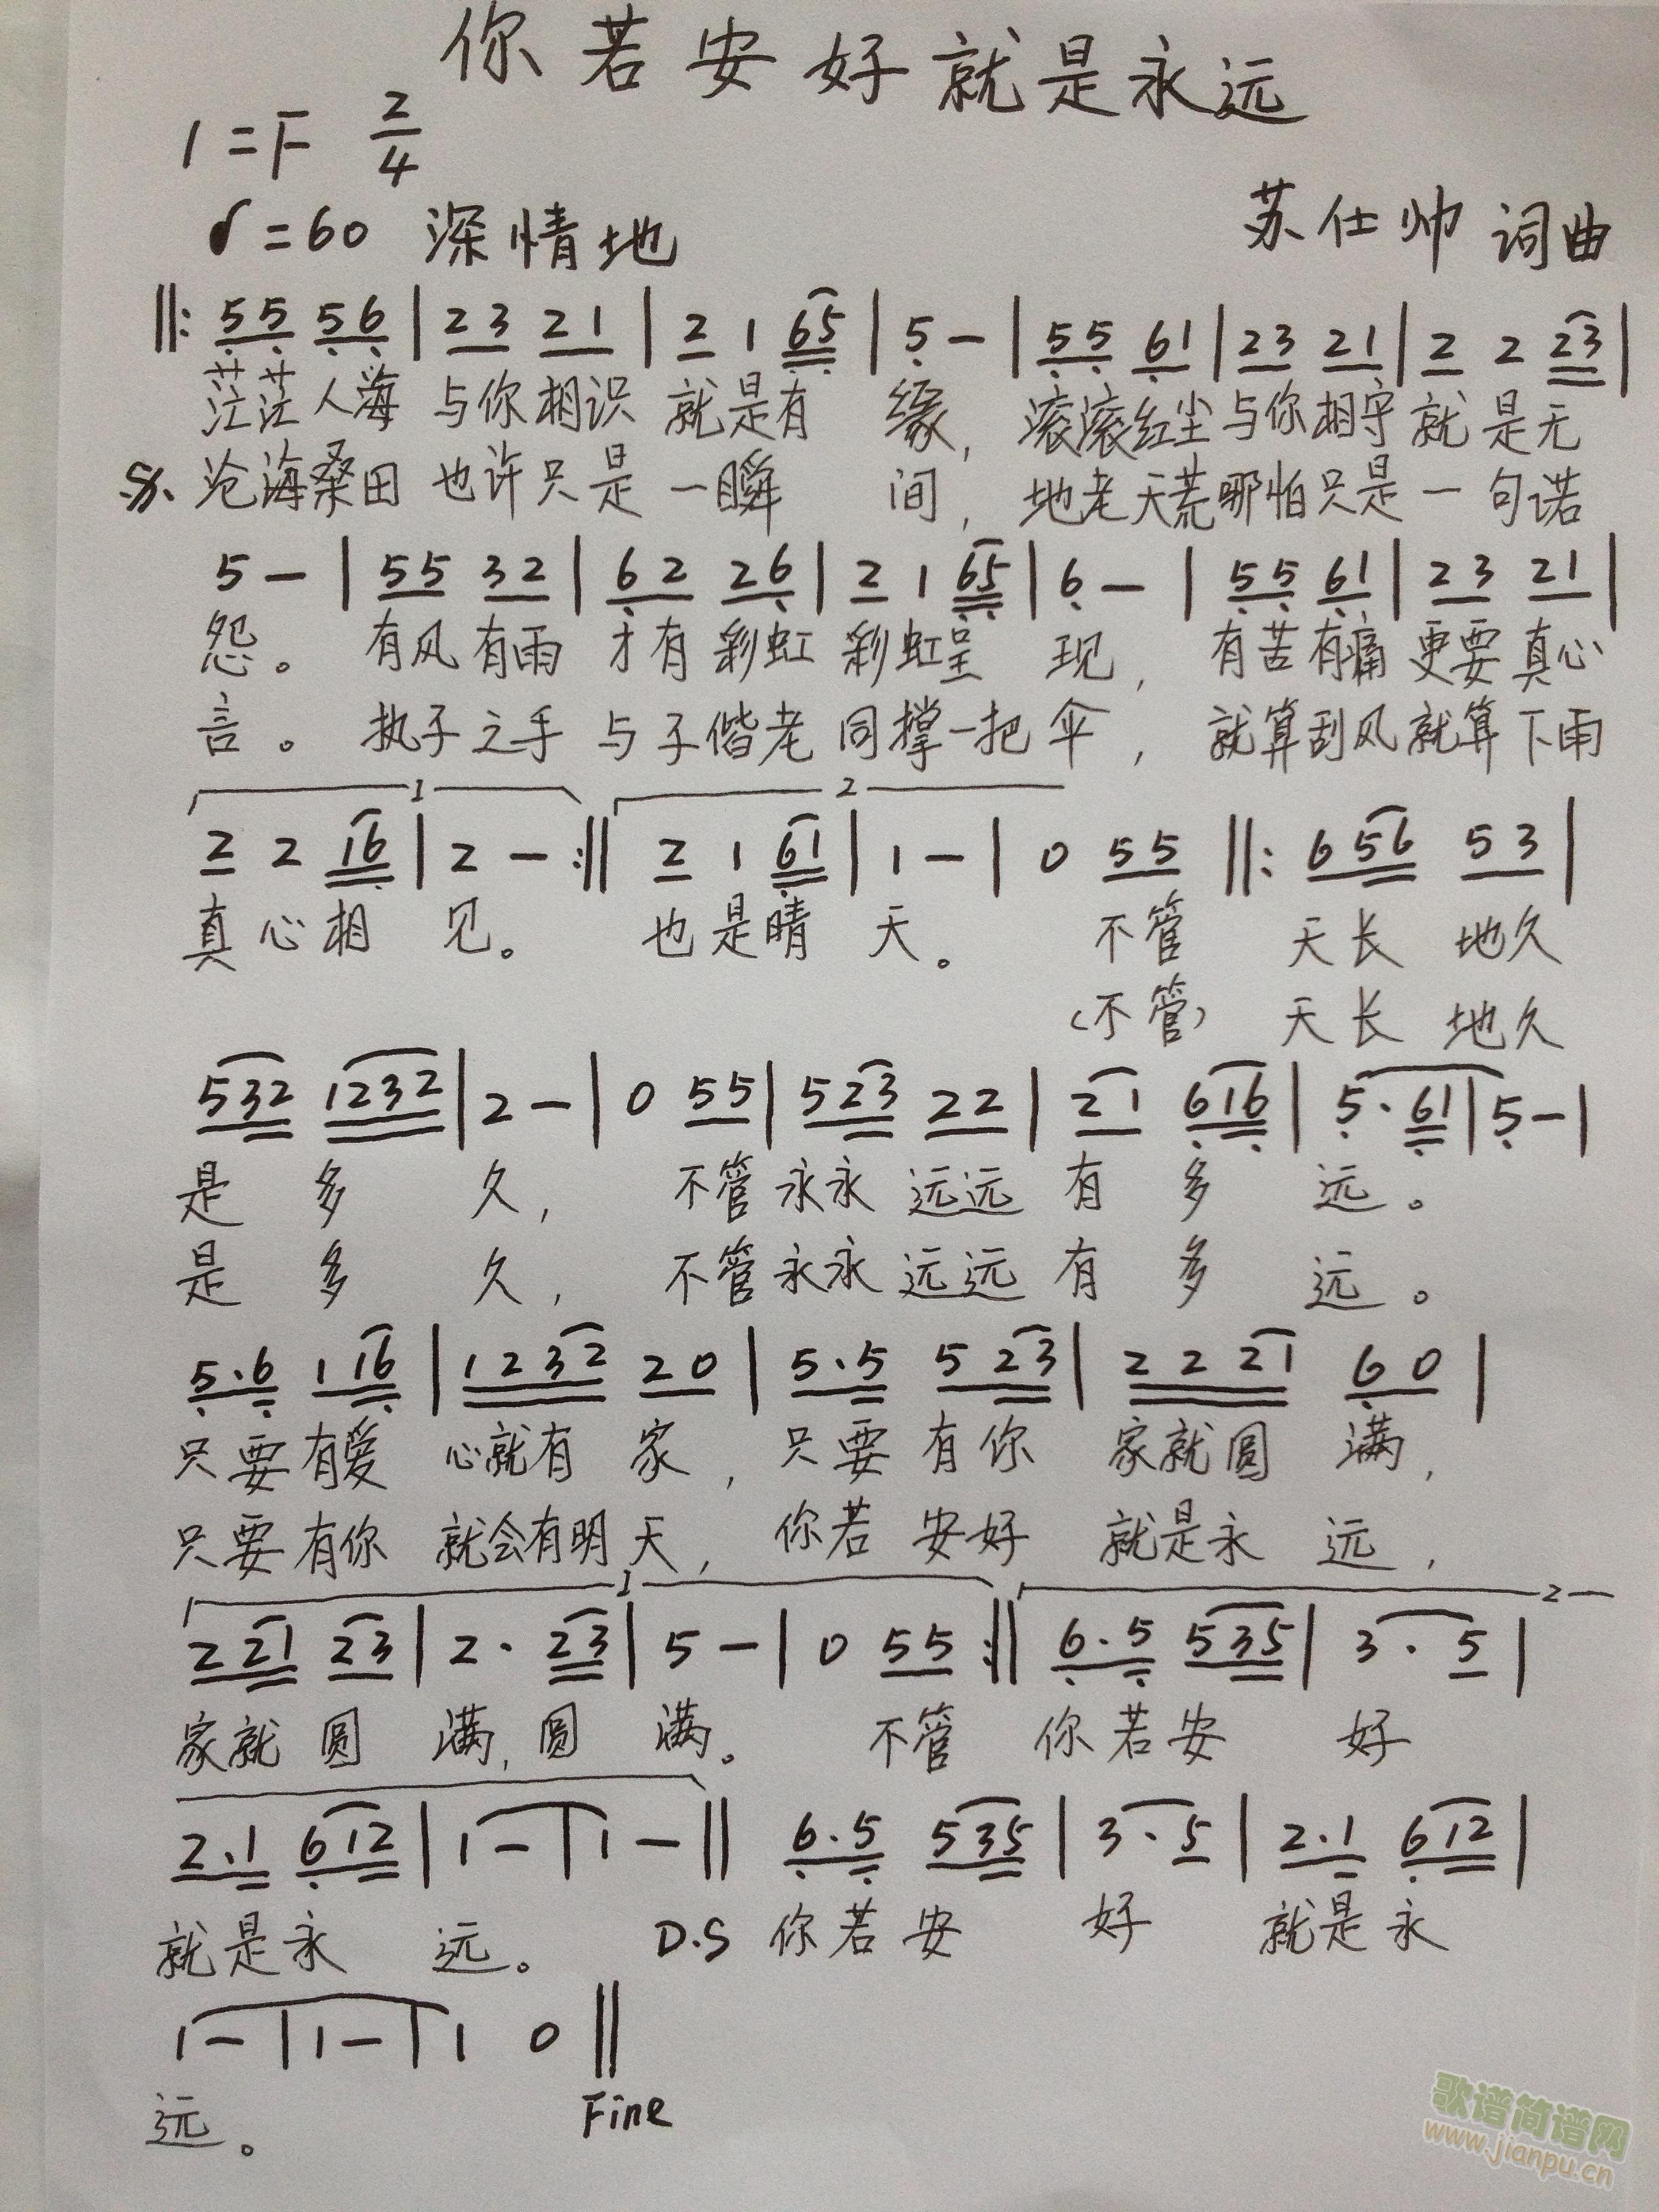 你若安好就是永远
1=F 2/4
♩=60 深情地 苏仕帅 词曲
‖: 55 56 | 23 21 | 2 1 65 | 5 — | 55 61 | 23 21 | 2 2 23 |
茫茫人海 与你相识 就是有 缘, 滚滚红尘与你相守就是无
𝄋 沧海桑田 也许只是一瞬 间, 地老天荒哪怕只是一句诺
5 — | 55 32 | 62 26 | 2 1 65 | 6 — | 55 61 | 23 21 |
怨。 有风有雨 才有彩虹 彩虹呈 现, 有苦有痛 更要真心
言。 执子之手 与子偕老 同撑一把 伞, 就算刮风就算下雨
1 2
2 2 16 | 2 — :‖ 2 1 61 | 1 — | 0 55 ‖: 656 53 |
真心相 见。 也是晴 天。 不管 天长 地久
(不管) 天长 地久
532 1232 | 2 — | 0 55 | 523 22 | 21 616 | 5· 61 | 5 — |
是 多 久, 不管永永 远远 有 多 远。
是 多 久, 不管永永 远远 有 多 远。
5·6 116 | 1232 20 | 5·5 523 | 2221 60 |
只要有爱 心就有 家, 只要有你 家就圆 满,
只要有你 就会有明天, 你若安好 就是永 远,
1 2
221 23 | 2· 23 | 5 — | 0 55 :‖ 6·5 535 | 3· 5 |
家就 圆 满,圆 满。 不管 你若安 好
2·1 612 | 1 — | 1 — ‖ 6·5 535 | 3· 5 | 2·1 612 |
就是永 远。 D.S 你若安 好 就是永
1 — | 1 — | 1 0 ‖
远。 Fine
歌谱简谱网
www.jianpu.cn